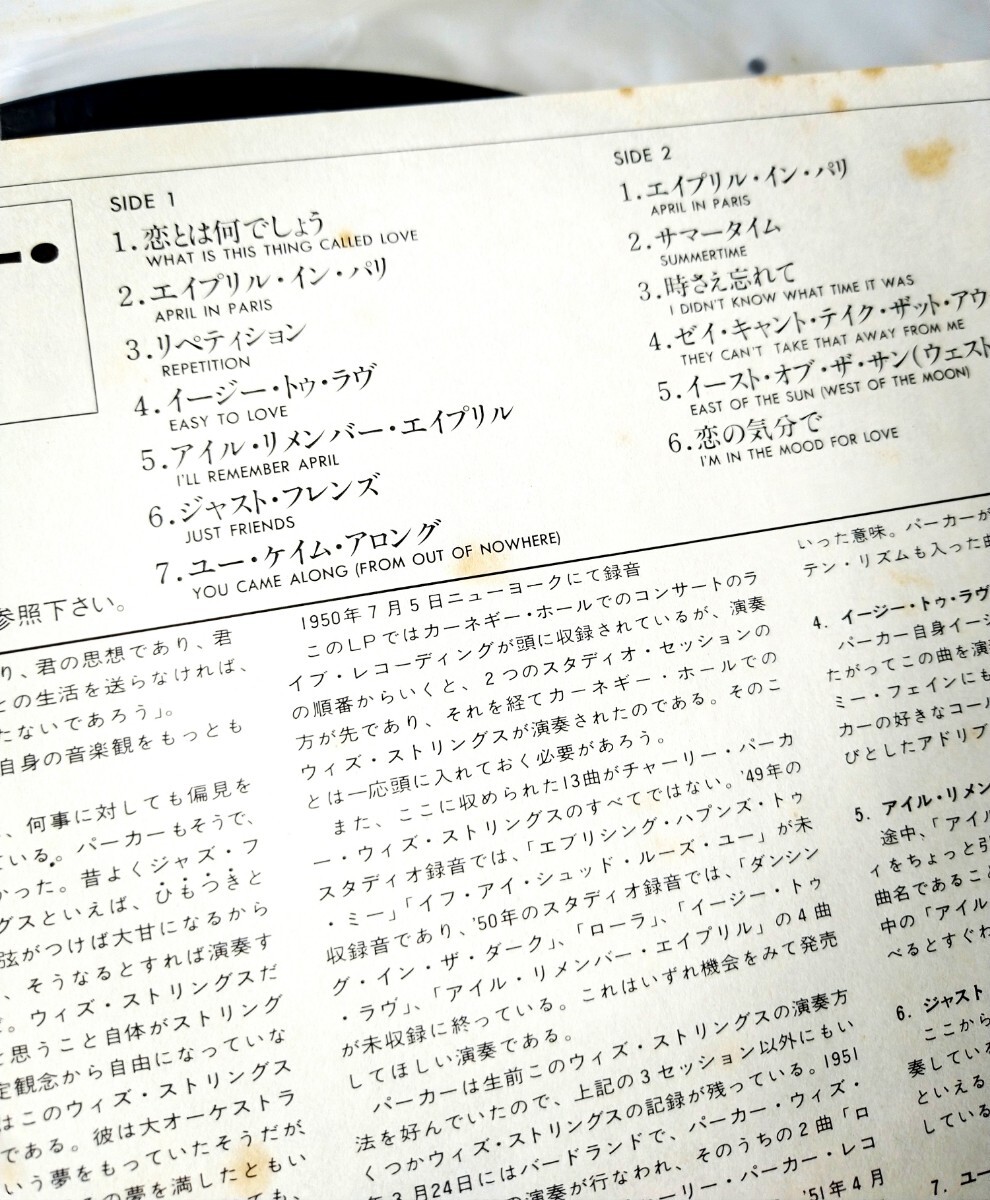 SIDE 1
1.恋とは何でしょう
WHAT IS THIS THING CALLED LOVE
2.エイプリル・イン・パリ
APRIL IN PARIS
3.リペティション
REPETITION
4.イージー・トゥ・ラヴ
EASY TO LOVE
5.アイル・リメンバー・エイプリル
I'LL REMEMBER APRIL
6.ジャスト・フレンズ
JUST FRIENDS
7.ユー・ケイム・アロング
YOU CAME ALONG (FROM OUT OF NOWHERE)
SIDE 2
1.エイプリル・イン・パリ
APRIL IN PARIS
2.サマータイム
SUMMERTIME
3.時さえ忘れて
I DIDN'T KNOW WHAT TIME IT WAS
4.ゼイ・キャント・テイク・ザット・アウ
THEY CAN'T TAKE THAT AWAY FROM ME
5.イースト・オブ・ザ・サン(ウェスト
EAST OF THE SUN (WEST OF THE MOON)
6.恋の気分で
I'M IN THE MOOD FOR LOVE
参照下さい。
り、君の思想であり、君
との生活を送らなければ、
たないであろう」。
自身の音楽観をもっとも
、何事に対しても偏見を
ている。パーカーもそうで、
かった。昔よくジャズ・フ
グスといえば、ひもつきと
弦がつけば大甘になるから
、そうなるとすれば演奏す
。ウィズ・ストリングスだ
と思うこと自体がストリング
定観念から自由になっていな
はこのウィズ・ストリングス
である。彼は大オーケストラ
いう夢をもっていたそうだが、
の夢を満したともい
ても、
1950年7月5日ニューヨークにて録音
このLPではカーネギー・ホールでのコンサートのラ
イブ・レコーディングが頭に収録されているが、演奏
の順番からいくと、2つのスタディオ・セッションの
方が先であり、それを経てカーネギー・ホールでの
ウィズ・ストリングスが演奏されたのである。そのこ
とは一応頭に入れておく必要があろう。
また、ここに収められた13曲がチャーリー・パーカ
ー・ウィズ・ストリングスのすべてではない。'49年の
スタディオ録音では、「エブリシング・ハプンズ・トゥ
・ミー」「イフ・アイ・シュッド・ルーズ・ユー」が未
収録音であり、'50年のスタディオ録音では、「ダンシン
グ・イン・ザ・ダーク」、「ローラ」、「イージー・トゥ
・ラヴ」、「アイル・リメンバー・エイプリル」の4曲
が未収録に終っている。これはいずれ機会をみて発売
してほしい演奏である。
パーカーは生前このウィズ・ストリングスの演奏方
法を好んでいたので、上記の3セッション以外にもい
くつかウィズ・ストリングスの記録が残っている。1951
年3月24日にはバードランドで、パーカー・ウィズ・
演奏が行なわれ、そのうちの2曲「ロ
ーリー・パーカー・レコ
'51年4月
いった意味。パーカーが
テン・リズムも入った曲
4. イージー・トゥ・ラヴ
パーカー自身イージ
たがってこの曲を演
ミー・フェインにも
カーの好きなコール
びとしたアドリブ
5. アイル・リメン
途中、「アイル
ィをちょっと引
曲名であること
中の「アイル
べるとすぐわ
6. ジャスト
ここから
奏している
といえる
している
7. ユー